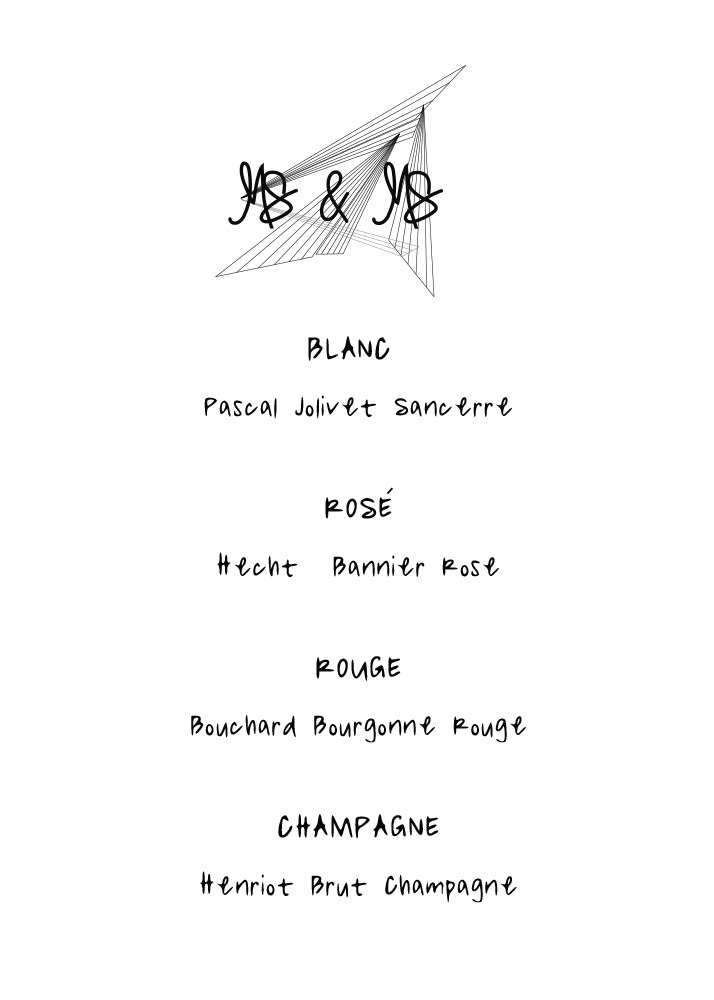 MS & MS
BLANC
Pascal Jolivet Sancerre
ROSÉ
Hecht Bannier Rose
ROUGE
Bouchard Bourgonne Rouge
CHAMPAGNE
Henriot Brut Champagne